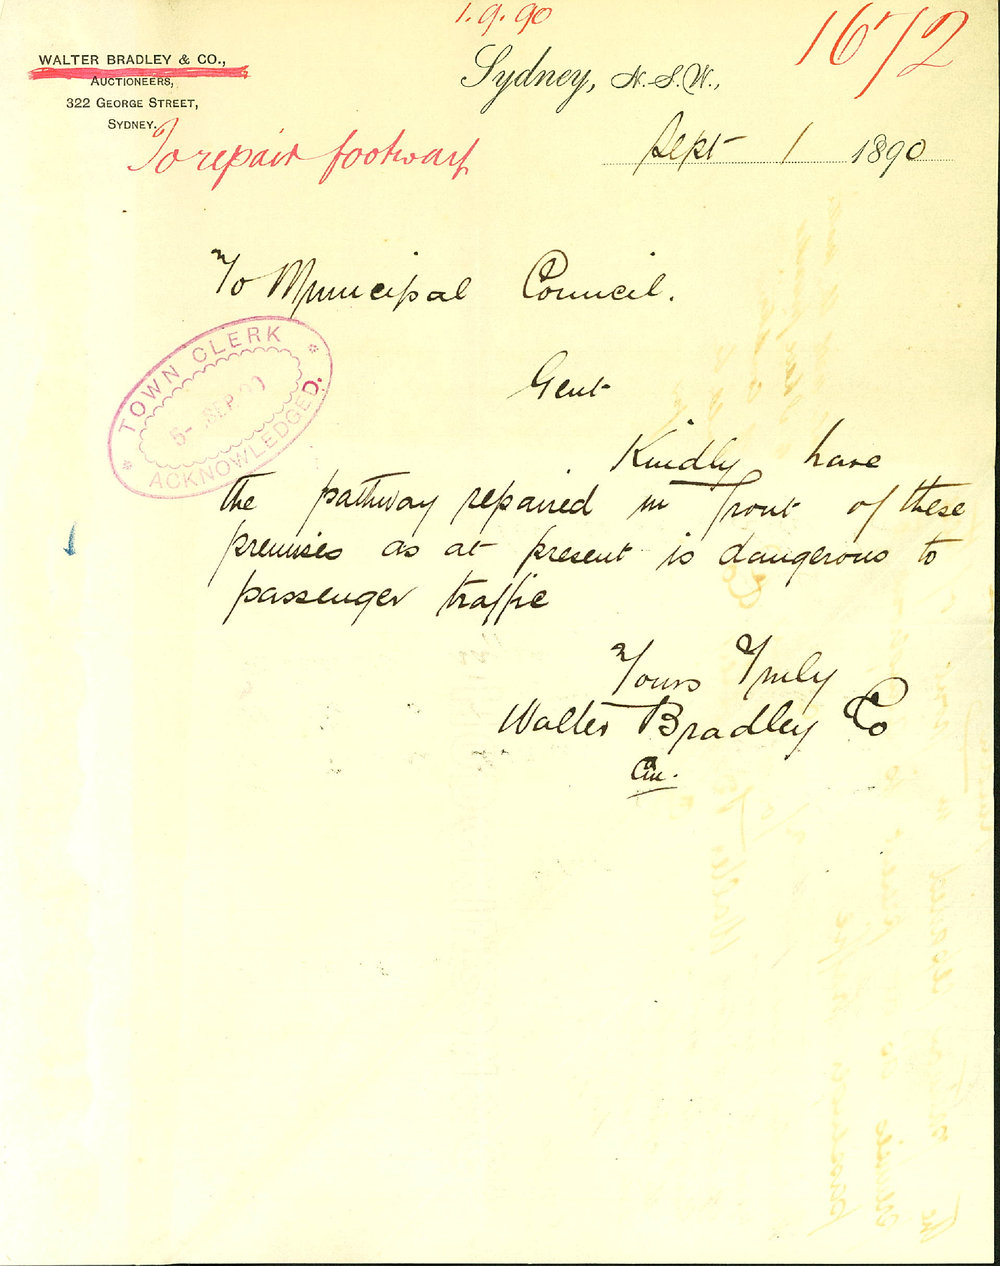 1.9.90
1672
WALTER BRADLEY & CO.,
AUCTIONEERS,
322 GEORGE STREET,
SYDNEY.
Sydney, N.S.W.,
Sept 1 1890
To repair footway
To Municipal Council.
TOWN CLERK
5- SEP 90
ACKNOWLEDGED.
Gent
Kindly have
the pathway repaired in front of these
premises as at present is dangerous to
passenger traffic
Yours Truly
Walter Bradley & Co